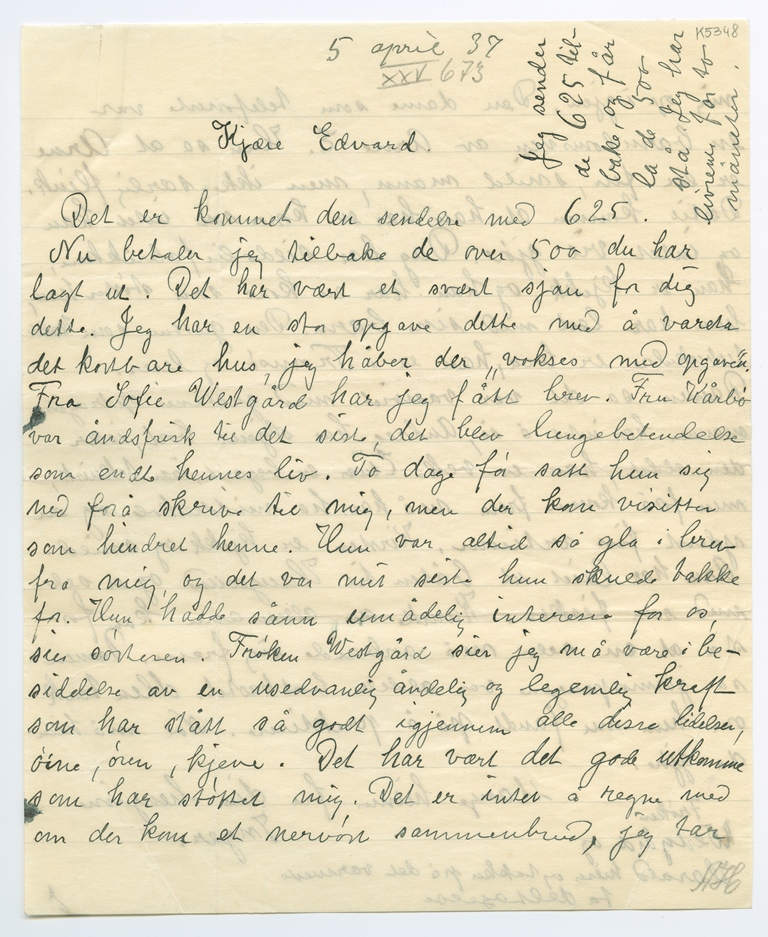 K5348
5 april 37
XXV 673
Jeg sender
de 625 til-
bake, og får
la de 500
stå. Jeg har
livrente for to
måneter.
Kjære Edvard.
Det er kommet den sendelse med 625.
Nu betaler jeg tilbake de over 500 du har
lagt ut. Det har vært et svært sjau for dig
dette. Jeg har en stor opgave dette med å vareta
det kostbare hus, jeg håber der „vokses med opgaven".
Fra Sofie Westgård har jeg fått brev. Fru Kårbø
var åndsfrisk til det siste, det blev lungebetendelse
som endte hennes liv. To dage før satt hun sig
ned forå skrive til mig, men der kom visitter
som hindret henne. Hun var altid så gla i brev
fra mig, og det var mit siste hun skulde takke
for. Hun hadde sånn umådelig interesse for os,
sier søsteren. Frøken Westgård sier jeg må være i be-
siddelse av en usedvanlig åndelig og legemlig kraft
som har stått så godt igjennem alle disse lidelser,
øine, øren, kjeve. Det har vært det gode utkomme
som har støttet mig. Det er intet å regne med
om der kom et nervøst sammenbrud, jeg tar